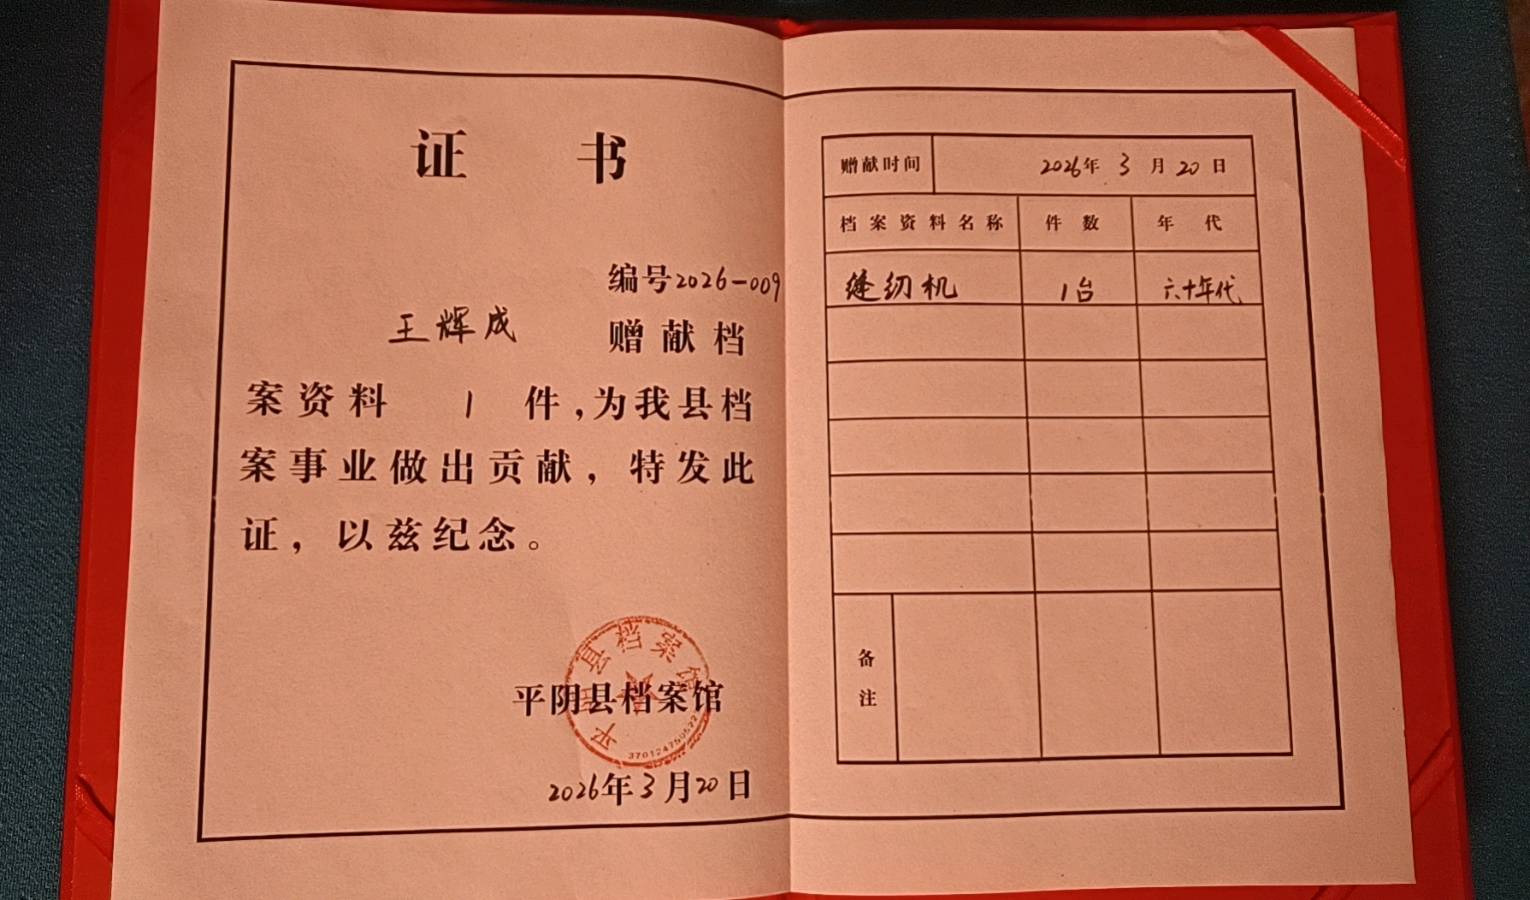 证 书
编号2026-009
王辉成 赠献档
案资料 1 件,为我县档
案事业做出贡献，特发此
证，以兹纪念。
平阴县档案馆
平阴县档案馆
2026年3月20日
赠献时间 2026年3月20日
档案资料名称 件数 年代
缝纫机 1台 六十年代
备注